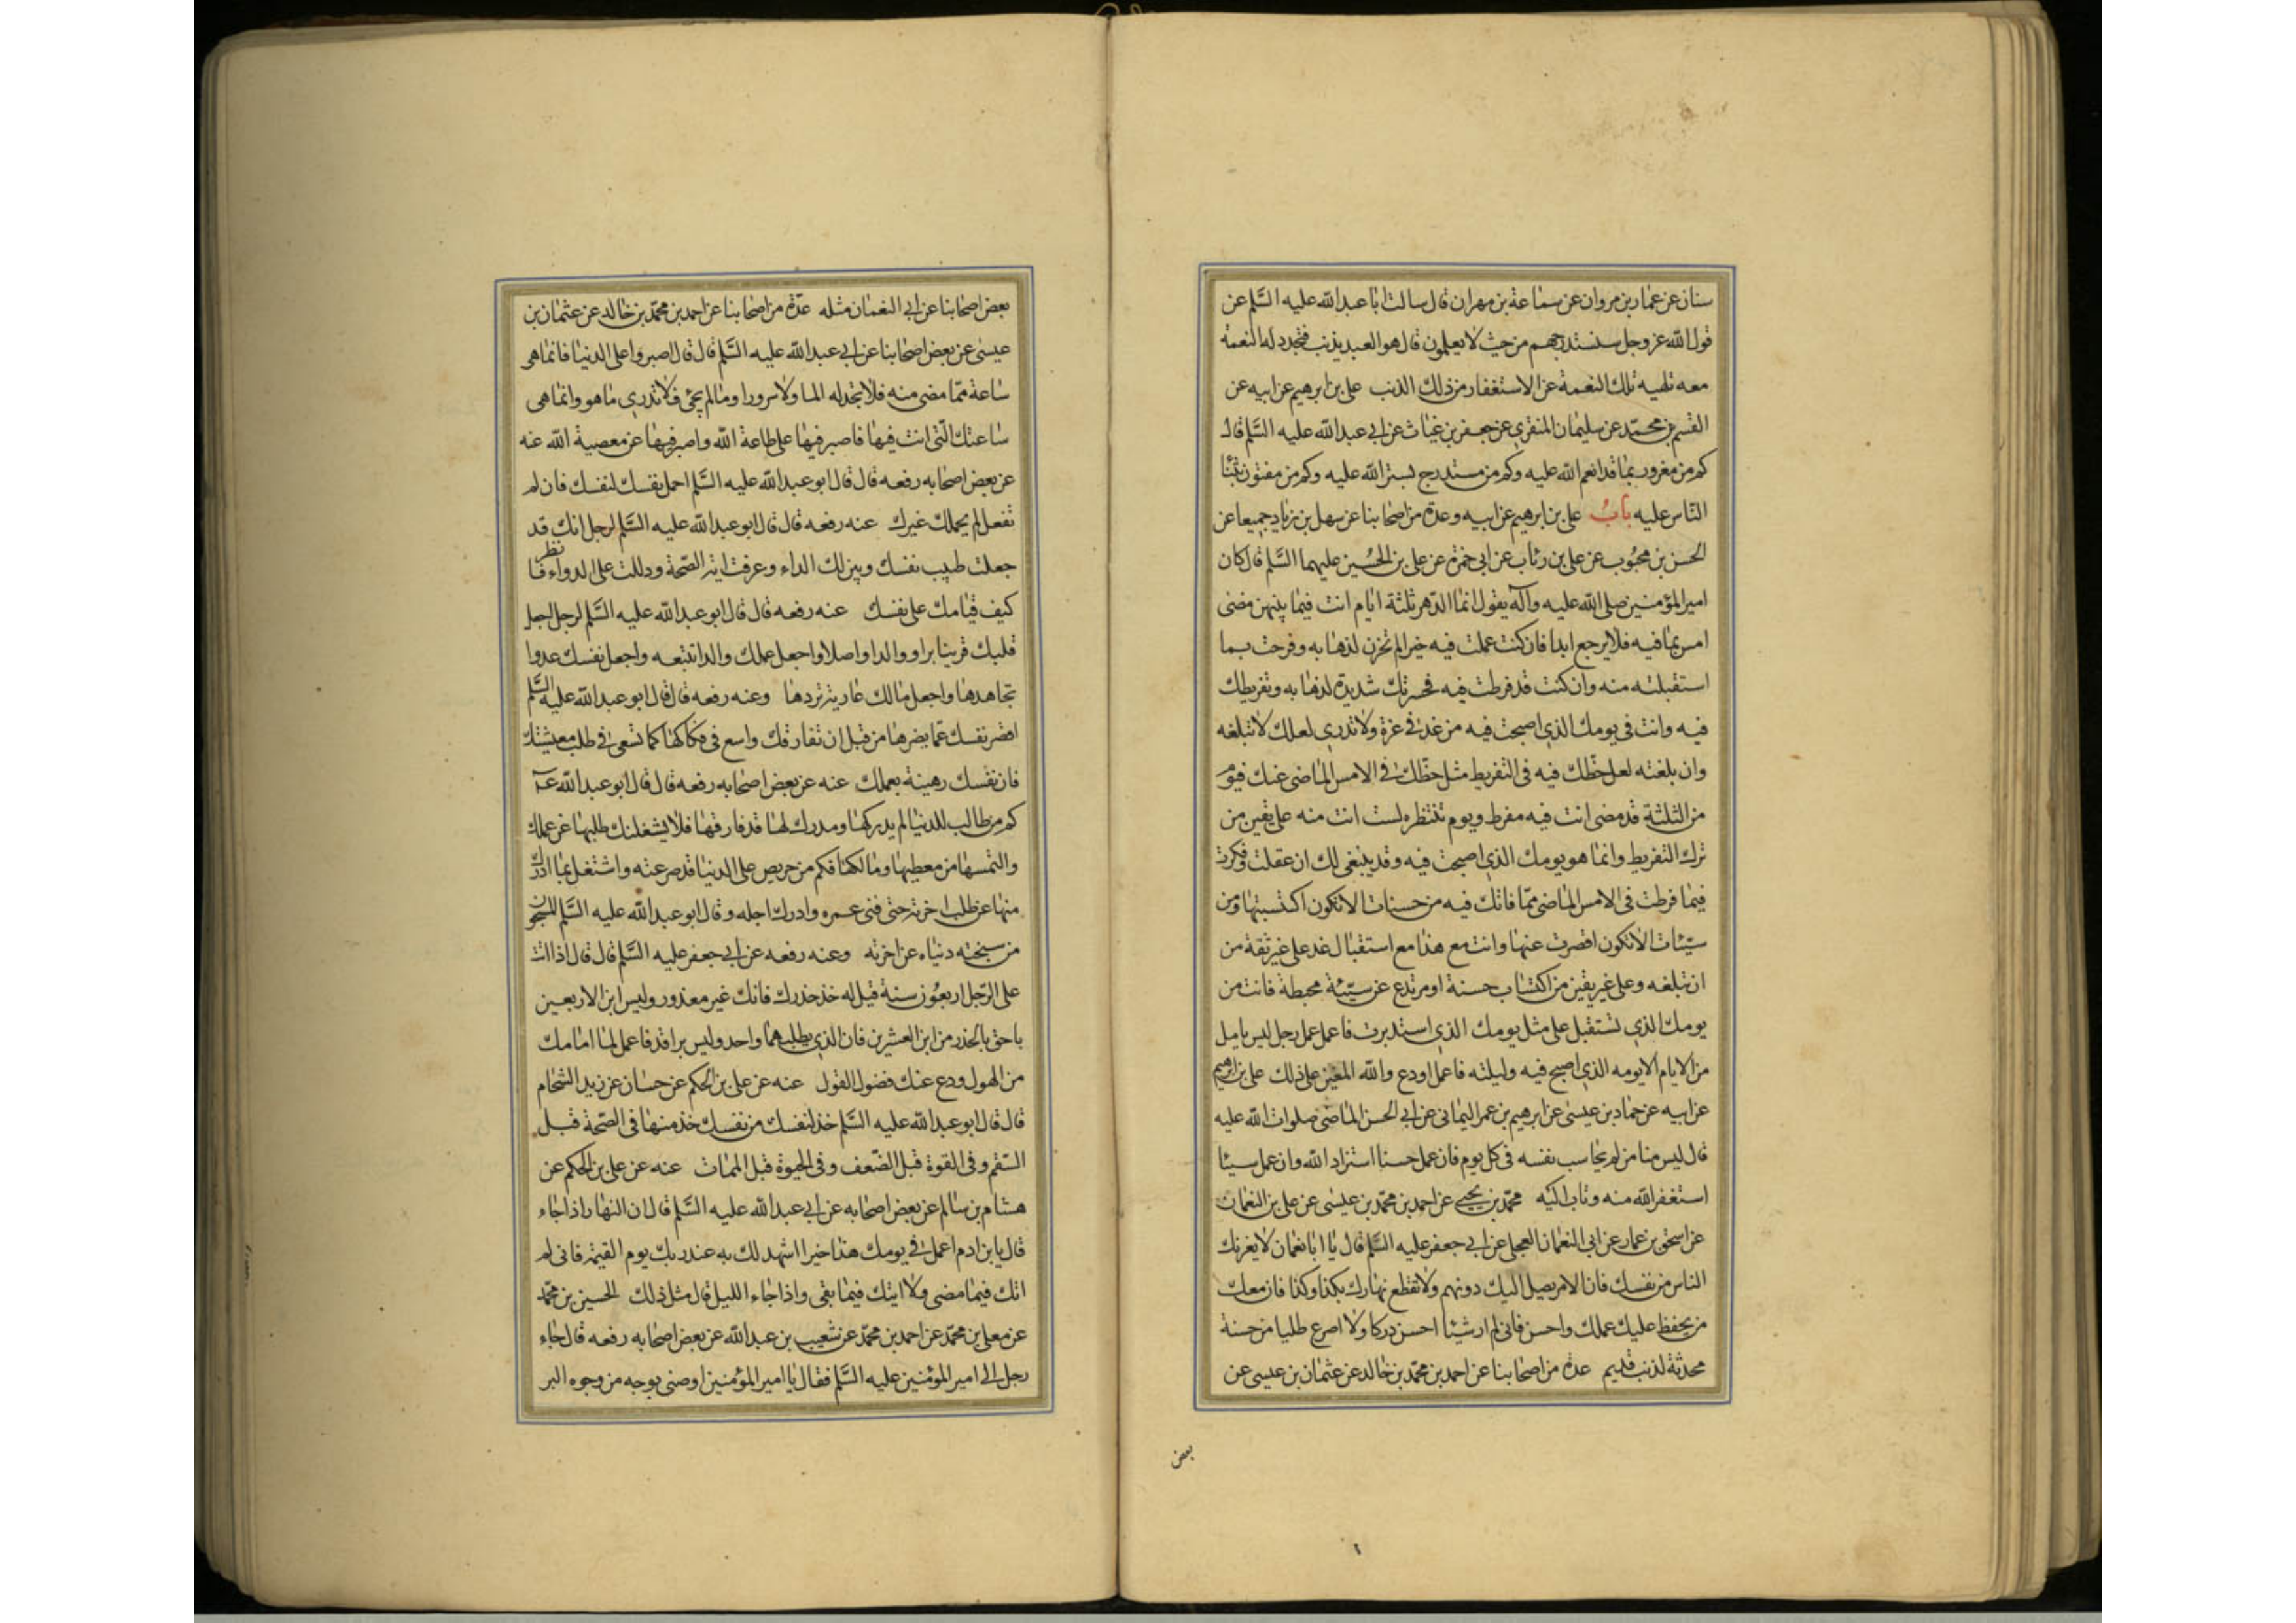 سنان عن عمار بن مروان عن سماعة بن مهران قال سالت ابا عبد الله عليه السلم عن
قول الله عز وجل سنستدرجهم من حيث لا يعلمون قال هو العبد يذنب فتجدد له النعمة
معه تلهيه تلك النعمة عن الاستغفار من ذلك الذنب علي بن ابرهيم عن ابيه عن
القسم بن محمد عن سليمان المنقري عن جعفر بن غياث عن ابي عبد الله عليه السلم قال
كم من مغرور بما قد انعم الله عليه وكم من مستدرج لستر الله عليه وكم من مفتون بثنا
الناس عليه باب علي بن ابرهيم عن ابيه وعدة من اصحابنا عن سهل بن زياد جميعا عن
الحسن بن محبوب عن علي بن رئاب عن ابي حمزة عن علي بن الحسين عليهما السلم قال كان
امير المؤمنين صلى الله عليه وآله يقول انما الدهر ثلثة ايام انت فيما بينهن مضى
امس بما فيه فلا يرجع ابدا فان كنت عملت فيه خيرا لم تحزن لذهابه وفرحت بما
استقبلته منه وان كنت قد فرطت فيه فحسرتك شديدة لذهابه وتفريطك
فيه وانت في يومك الذي اصبحت فيه من غد في غرة ولا تدري لعلك لا تبلغه
وان بلغته لعل حظك فيه في التفريط مثل حظك في الامس الماضي عنك فيوم
من الثلثة قد مضى انت فيه مفرط ويوم تنتظره لست انت منه على يقين من
ترك التفريط وانما هو يومك الذي اصبحت فيه وقد ينبغي لك ان عقلت وفكرت
فيما فرطت في الامس الماضي مما فاتك فيه من حسنات الا تكون اكتسبتها ومن
سيئات الا تكون اقصرت عنها وانت مع هذا مع استقبال غد على غير ثقة من
ان تبلغه وعلى غير يقين من اكتساب حسنة او مرتدع عن سيئة محبطة فانت من
يومك الذي تستقبل على مثل يومك الذي استدبرت فاعمل عمل رجل ليس يامل
من الايام الا يومه الذي اصبح فيه وليلته فاعمل او دع والله المعين على ذلك علي بن ابرهيم
عن ابيه عن حماد بن عيسى عن ابرهيم بن عمر اليماني عن ابي الحسن الماضي صلوات الله عليه
قال ليس منا من لم يحاسب نفسه في كل يوم فان عمل حسنا استزاد الله وان عمل سيئا
استغفر الله منه وتاب اليه محمد بن يحيى عن احمد بن محمد بن عيسى عن علي بن النعمان
عن اسحق بن عمار عن ابي النعمان العجلي عن ابي جعفر عليه السلم قال يا ابا نعمان لا يغرنك
الناس من نفسك فان الامر يصل اليك دونهم ولا تقطع نهارك بكذا وكذا فان معك
من يحفظ عليك عملك واحسن فاني لم ار شيئا احسن دركا ولا اسرع طلبا من حسنة
محدثة لذنب قديم عدة من اصحابنا عن احمد بن محمد بن خالد عن عثمان بن عيسى عن
بعض
بعض اصحابنا عن ابي النعمان مثله عدة من اصحابنا عن احمد بن محمد بن خالد عن عثمان بن
عيسى عن بعض اصحابنا عن ابي عبد الله عليه السلم قال قال اصبروا على الدنيا فانما هي
ساعة فما مضى منه فلا تجد له الما ولا سرورا وما لم يجئ فلا تدري ما هو وانما هي
ساعتك التي انت فيها فاصبر فيها على طاعة الله واصبر فيها عن معصية الله عنه
عن بعض اصحابه رفعه قال قال ابو عبد الله عليه السلم احمل نفسك لنفسك فان لم
تفعل لم يحملك غيرك عنه رفعه قال قال ابو عبد الله عليه السلم لرجل انك قد
جعلت طبيب نفسك وبين لك الداء وعرفت اية الصحة ودللت على الدواء فانظر
كيف قيامك على نفسك عنه رفعه قال قال ابو عبد الله عليه السلم لرجل اجعل
قلبك قرينا برا و والدا واصلا واجعل عملك والدا تتبعه واجعل نفسك عدوا
تجاهدها واجعل مالك عارية تردها وعنه رفعه قال قال ابو عبد الله عليه السلم
اقصر نفسك عما يضرها من قبل ان تفارقك واسع في فكاكها كما تسعى في طلب معيشتك
فان نفسك رهينة بعملك عنه عن بعض اصحابه رفعه قال قال ابو عبد الله ع
كم من طالب للدنيا لم يدركها ومدرك لها قد فارقها فلا يشغلنك طلبها عن عملك
والتمسها من معطيها ومالكها فكم من حريص على الدنيا قد صرعته واشتغل بما ادرك
منها عن طلب اخرته حتى فنى عمره وادرك اجله وقال ابو عبد الله عليه السلم المسجون
من سجنته دنياه عن اخرته وعنه رفعه عن ابي جعفر عليه السلم قال قال اذا اتت
على الرجل اربعون سنة قيل له خذ حذرك فانك غير معذور وليس ابن الاربعين
باحق بالحذر من ابن العشرين فان الذي يطلبهما واحد وليس براقد فاعمل لما امامك
من الهول ودع عنك فضول القول عنه عن علي بن الحكم عن حسان عن زيد الشحام
قال قال ابو عبد الله عليه السلم خذ لنفسك من نفسك خذ منها في الصحة قبل
السقم وفي القوة قبل الضعف وفي الحيوة قبل الممات عنه عن علي بن الحكم عن
هشام بن سالم عن بعض اصحابه عن ابي عبد الله عليه السلم قال ان النهار اذا جاء
قال يا بن ادم اعمل في يومك هذا خيرا اشهد لك به عند ربك يوم القيمة فاني لم
اتك فيما مضى ولا اتيك فيما بقى واذا جاء الليل قال مثل ذلك الحسين بن محمد
عن معلى بن محمد عن احمد بن محمد عن شعيب بن عبد الله عن بعض اصحابه رفعه قال جاء
رجل الى امير المؤمنين عليه السلم فقال يا امير المؤمنين اوصني بوجه من وجوه البر